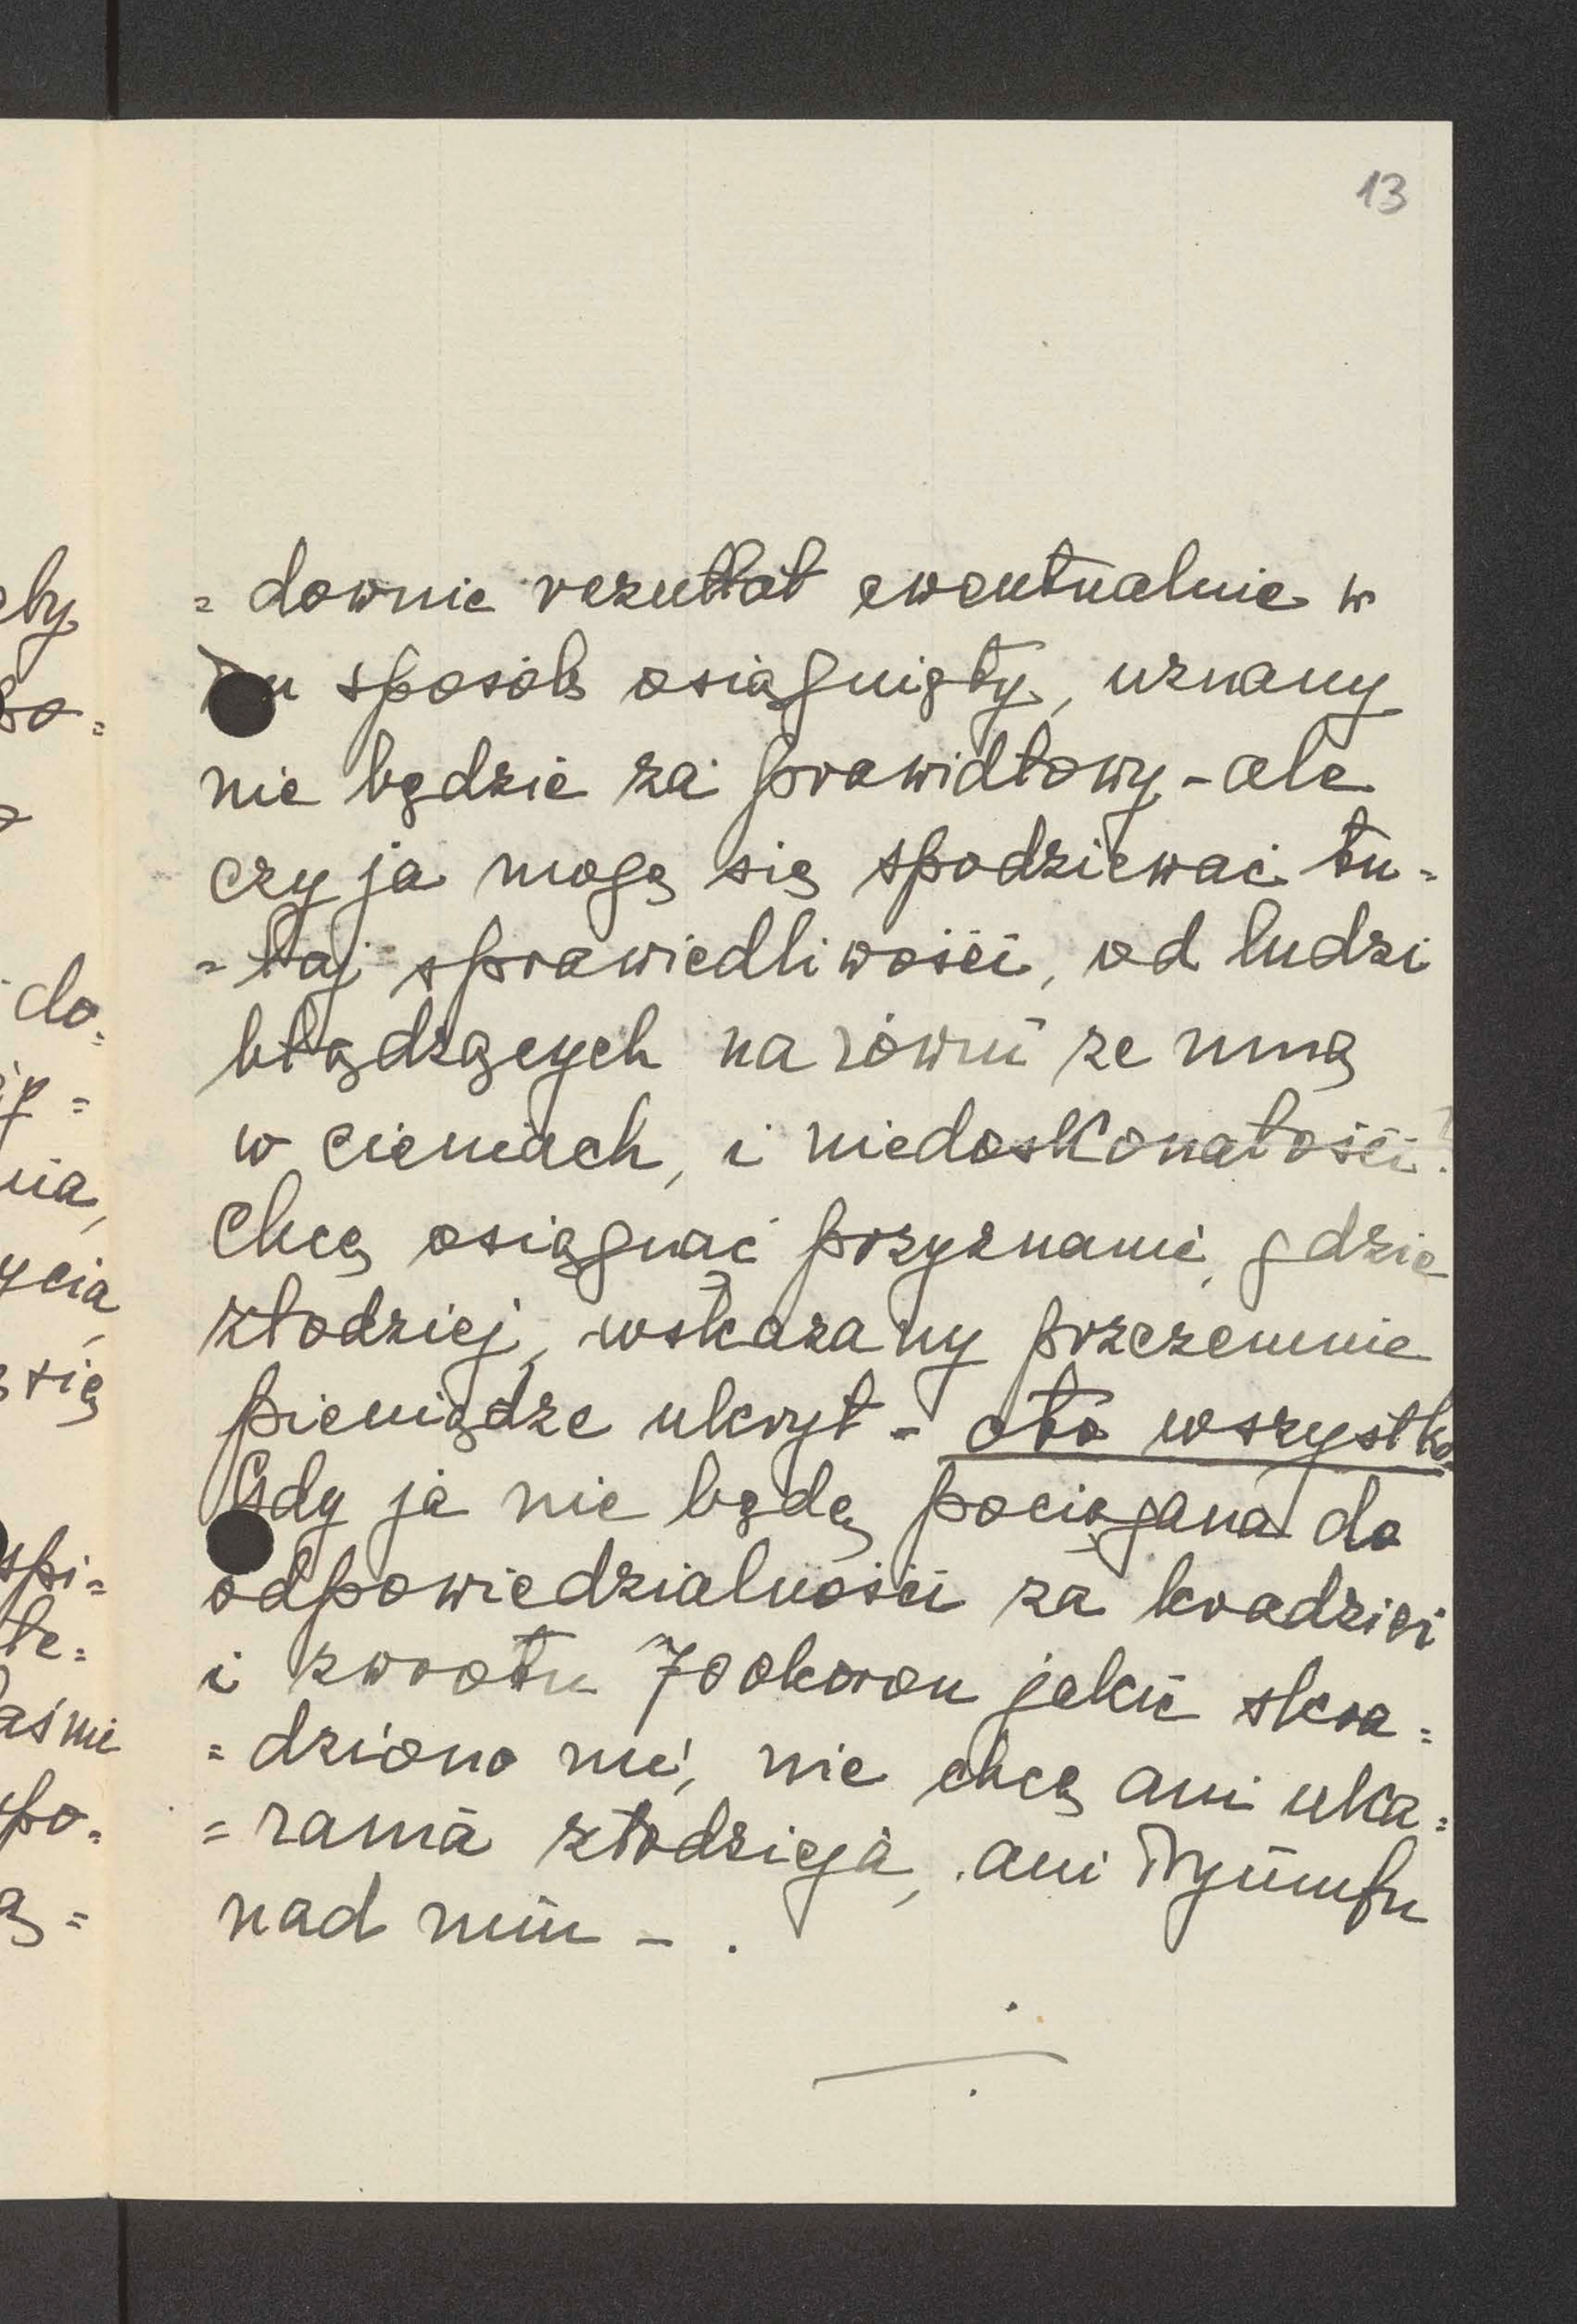 13
= downie rezultat ewentualnie w
sposób osiągnięty, uznany
nie będzie za prawidłowy - ale
czy ja mogę się spodziewać tu -
- taj sprawiedliwości, od ludzi
błądzących na równi ze mną
w cieniach, i niedoskonałości?
Chcę osiągnąć przyznanie, gdzie
złodziej, wskazany przezemnie
pieniądze ukrył - oto wszystko
Gdy ja nie będę pociągana do
odpowiedzialności za kradzież
i zwrotu 700 koron jakie skra =
= dziono mi, nie chcę ani uka =
= rania złodzieja, ani tryumfu
nad nim - .
eby
do.
nia,
ycia,
się
spi =
te =
aśnie
po =